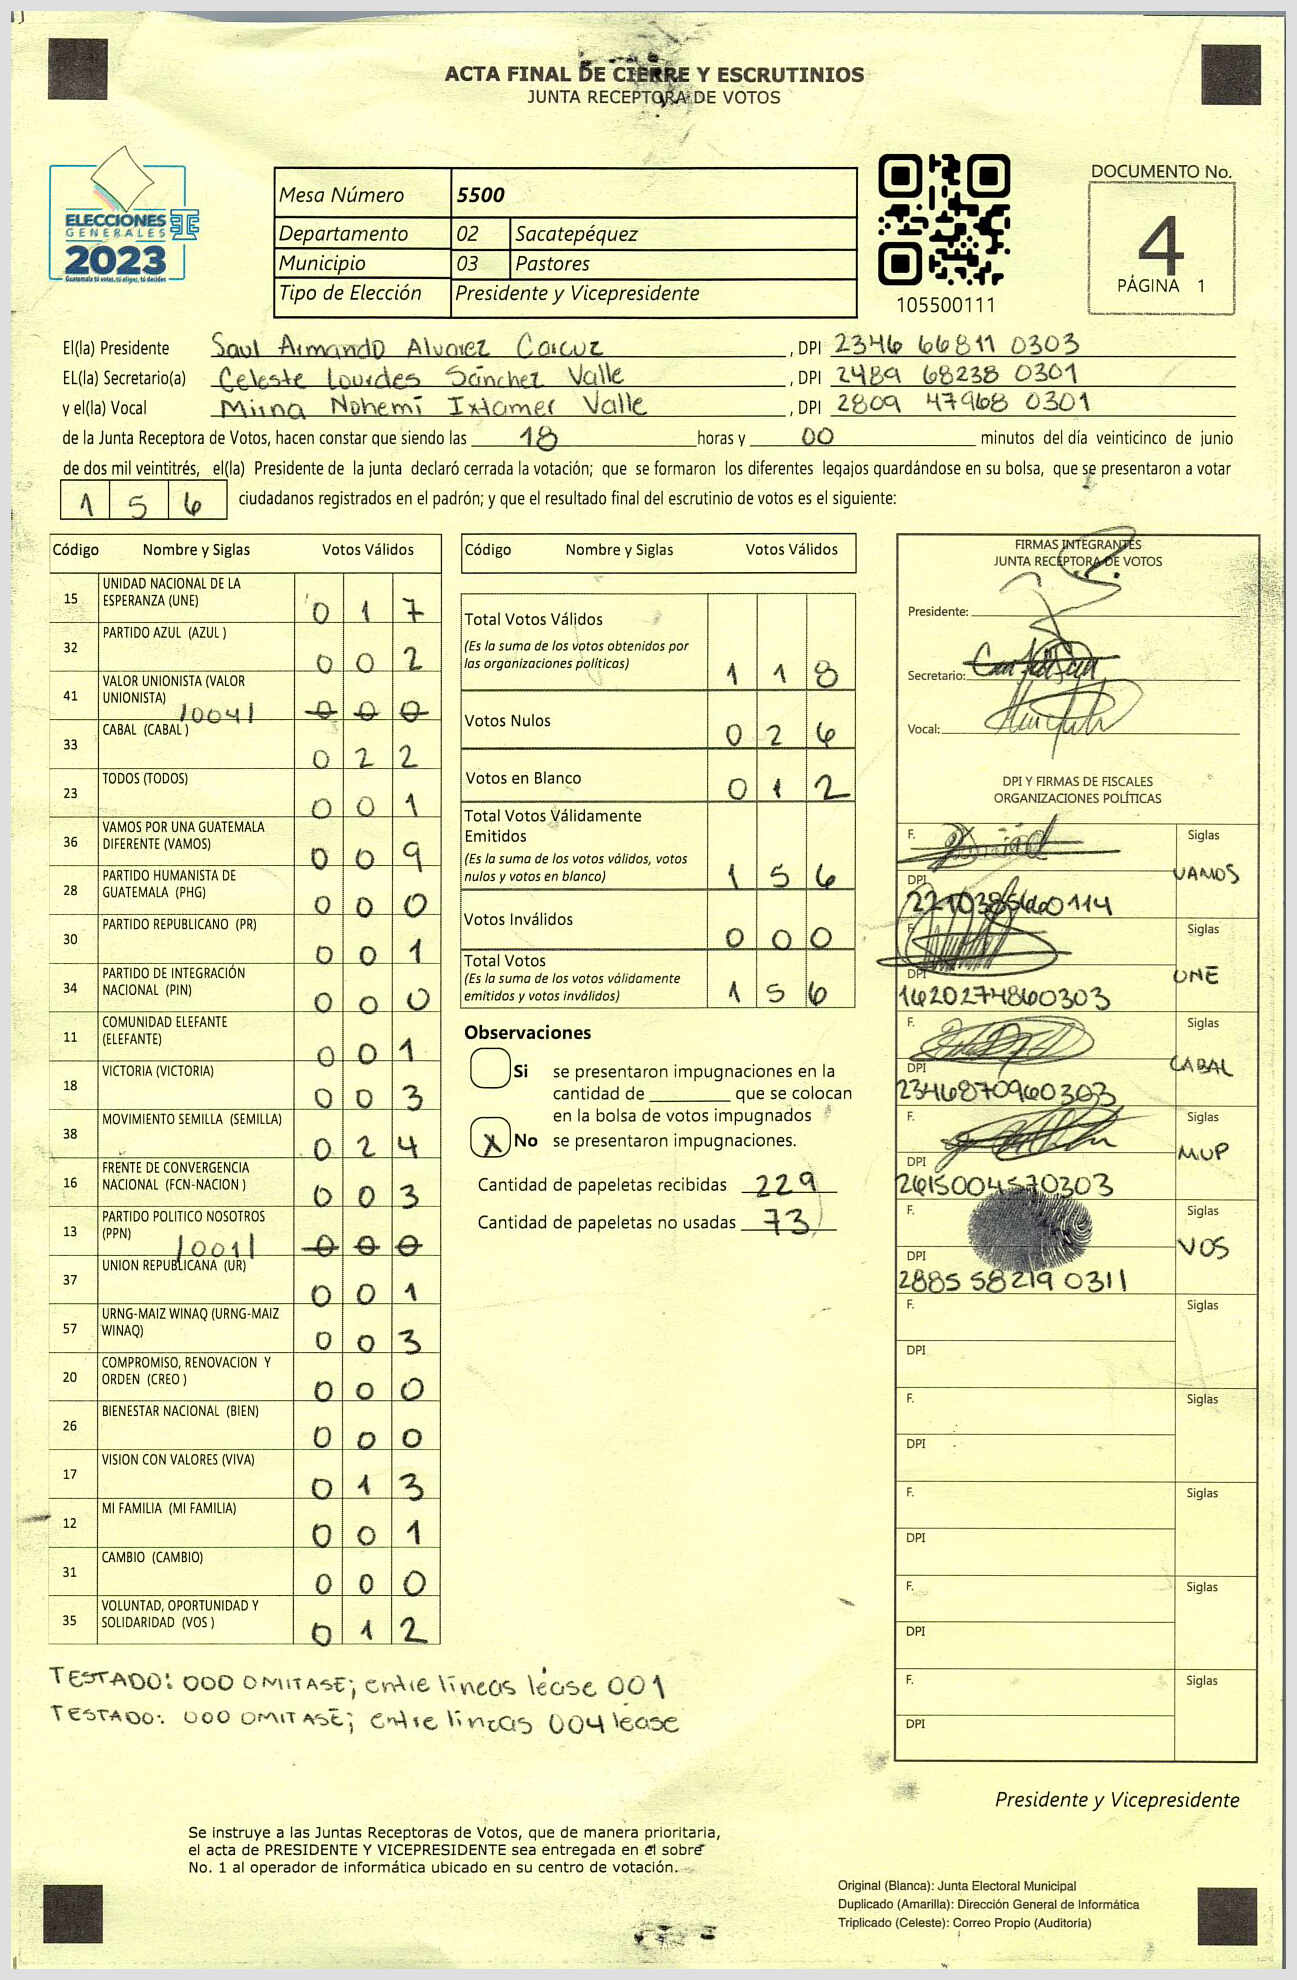 ACTA FINAL DE CIERRE Y ESCRUTINIOS
JUNTA RECEPTORA DE VOTOS
ELECCIONES
GENERALES
2023
Guatemala tú votas, tú eliges, tú decides
Mesa Número 5500
Departamento 02 Sacatepéquez
Municipio 03 Pastores
Tipo de Elección Presidente y Vicepresidente
105500111
DOCUMENTO No.
4
PÁGINA 1
El(la) Presidente Saul Armando Alvarez Carcuz, DPI 2346 66811 0303
EL(la) Secretario(a) Celeste Lourdes Sánchez Valle, DPI 2489 68238 0301
y el(la) Vocal Mirna Nohemí Ixtamer Valle, DPI 2809 47968 0301
de la Junta Receptora de Votos, hacen constar que siendo las 18 horas y 00 minutos del día veinticinco de junio
de dos mil veintitrés, el(la) Presidente de la junta declaró cerrada la votación; que se formaron los diferentes legajos guardándose en su bolsa, que se presentaron a votar
1 5 6 ciudadanos registrados en el padrón; y que el resultado final del escrutinio de votos es el siguiente:
Código Nombre y Siglas Votos Válidos
15 UNIDAD NACIONAL DE LA ESPERANZA (UNE) 0 1 7
32 PARTIDO AZUL (AZUL ) 0 0 2
41 VALOR UNIONISTA (VALOR UNIONISTA) /004/ 0 0 0
33 CABAL (CABAL ) 0 2 2
23 TODOS (TODOS) 0 0 1
36 VAMOS POR UNA GUATEMALA DIFERENTE (VAMOS) 0 0 9
28 PARTIDO HUMANISTA DE GUATEMALA (PHG) 0 0 0
30 PARTIDO REPUBLICANO (PR) 0 0 1
34 PARTIDO DE INTEGRACIÓN NACIONAL (PIN) 0 0 0
11 COMUNIDAD ELEFANTE (ELEFANTE) 0 0 1
18 VICTORIA (VICTORIA) 0 0 3
38 MOVIMIENTO SEMILLA (SEMILLA) 0 2 4
16 FRENTE DE CONVERGENCIA NACIONAL (FCN-NACION ) 0 0 3
13 PARTIDO POLITICO NOSOTROS (PPN) /001/ 0 0 0
37 UNION REPUBLICANA (UR) 0 0 1
57 URNG-MAIZ WINAQ (URNG-MAIZ WINAQ) 0 0 3
20 COMPROMISO, RENOVACION Y ORDEN (CREO ) 0 0 0
26 BIENESTAR NACIONAL (BIEN) 0 0 0
17 VISION CON VALORES (VIVA) 0 1 3
12 MI FAMILIA (MI FAMILIA) 0 0 1
31 CAMBIO (CAMBIO) 0 0 0
35 VOLUNTAD, OPORTUNIDAD Y SOLIDARIDAD (VOS ) 0 1 2
TESTADO: 000 OMITASE; entre líneas léase 001
TESTADO: 000 OMITASE; entre líneas 004 léase
Código Nombre y Siglas Votos Válidos
Total Votos Válidos 1 1 8
(Es la suma de los votos obtenidos por
las organizaciones políticas)
Votos Nulos 0 2 6
Votos en Blanco 0 1 2
Total Votos Válidamente
Emitidos 1 5 6
(Es la suma de los votos válidos, votos
nulos y votos en blanco)
Votos Inválidos 0 0 0
Total Votos 1 5 6
(Es la suma de los votos válidamente
emitidos y votos inválidos)
Observaciones
Si se presentaron impugnaciones en la
cantidad de ________ que se colocan
en la bolsa de votos impugnados
X No se presentaron impugnaciones.
Cantidad de papeletas recibidas 229
Cantidad de papeletas no usadas 73
FIRMAS INTEGRANTES
JUNTA RECEPTORA DE VOTOS
Presidente:
Secretario:
Vocal:
DPI Y FIRMAS DE FISCALES
ORGANIZACIONES POLÍTICAS
F. Siglas
VAMOS
DPI
F. Siglas
UNE
DPI
1620274860303
F. Siglas
CABAL
DPI
2346870960303
F. Siglas
MUP
DPI
2615004570303
F. Siglas
VOS
DPI
2885 58219 0311
F. Siglas
DPI
F. Siglas
DPI
F. Siglas
DPI
F. Siglas
DPI
F. Siglas
DPI
Presidente y Vicepresidente
Se instruye a las Juntas Receptoras de Votos, que de manera prioritaria,
el acta de PRESIDENTE Y VICEPRESIDENTE sea entregada en el sobre
No. 1 al operador de informática ubicado en su centro de votación.
Original (Blanca): Junta Electoral Municipal
Duplicado (Amarilla): Dirección General de Informática
Triplicado (Celeste): Correo Propio (Auditoria)